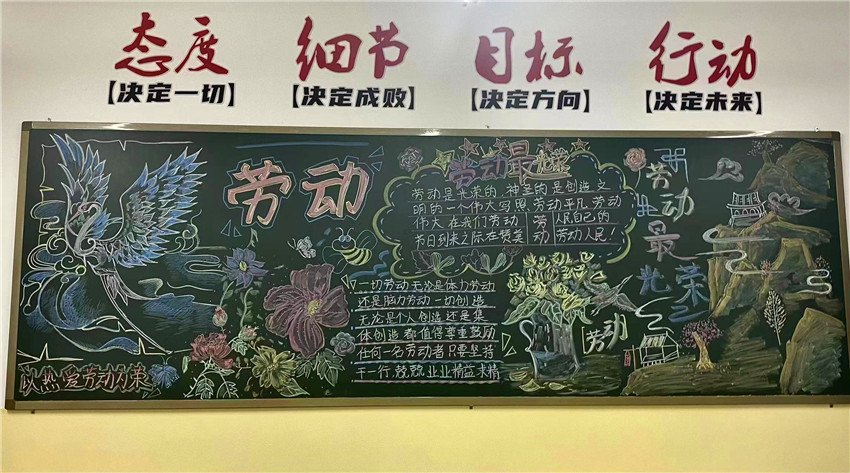 态度 细节 目标 行动
【决定一切】 【决定成败】 【决定方向】 【决定未来】
劳动
劳动最光荣
劳动是光荣的,神圣的是创造文
明的一个伟大写照,劳动平凡,劳动
伟大在我们劳动人民自己的
节日到来之际在赞美劳动人民!
一切劳动无论是体力劳动
还是脑力劳动一切创造
无论是个人创造还是集
体创造都值得尊重鼓励
任何一名劳动者只要坚持
干一行,兢兢业业精益求精
劳动
劳动最光荣
以热爱劳动为荣